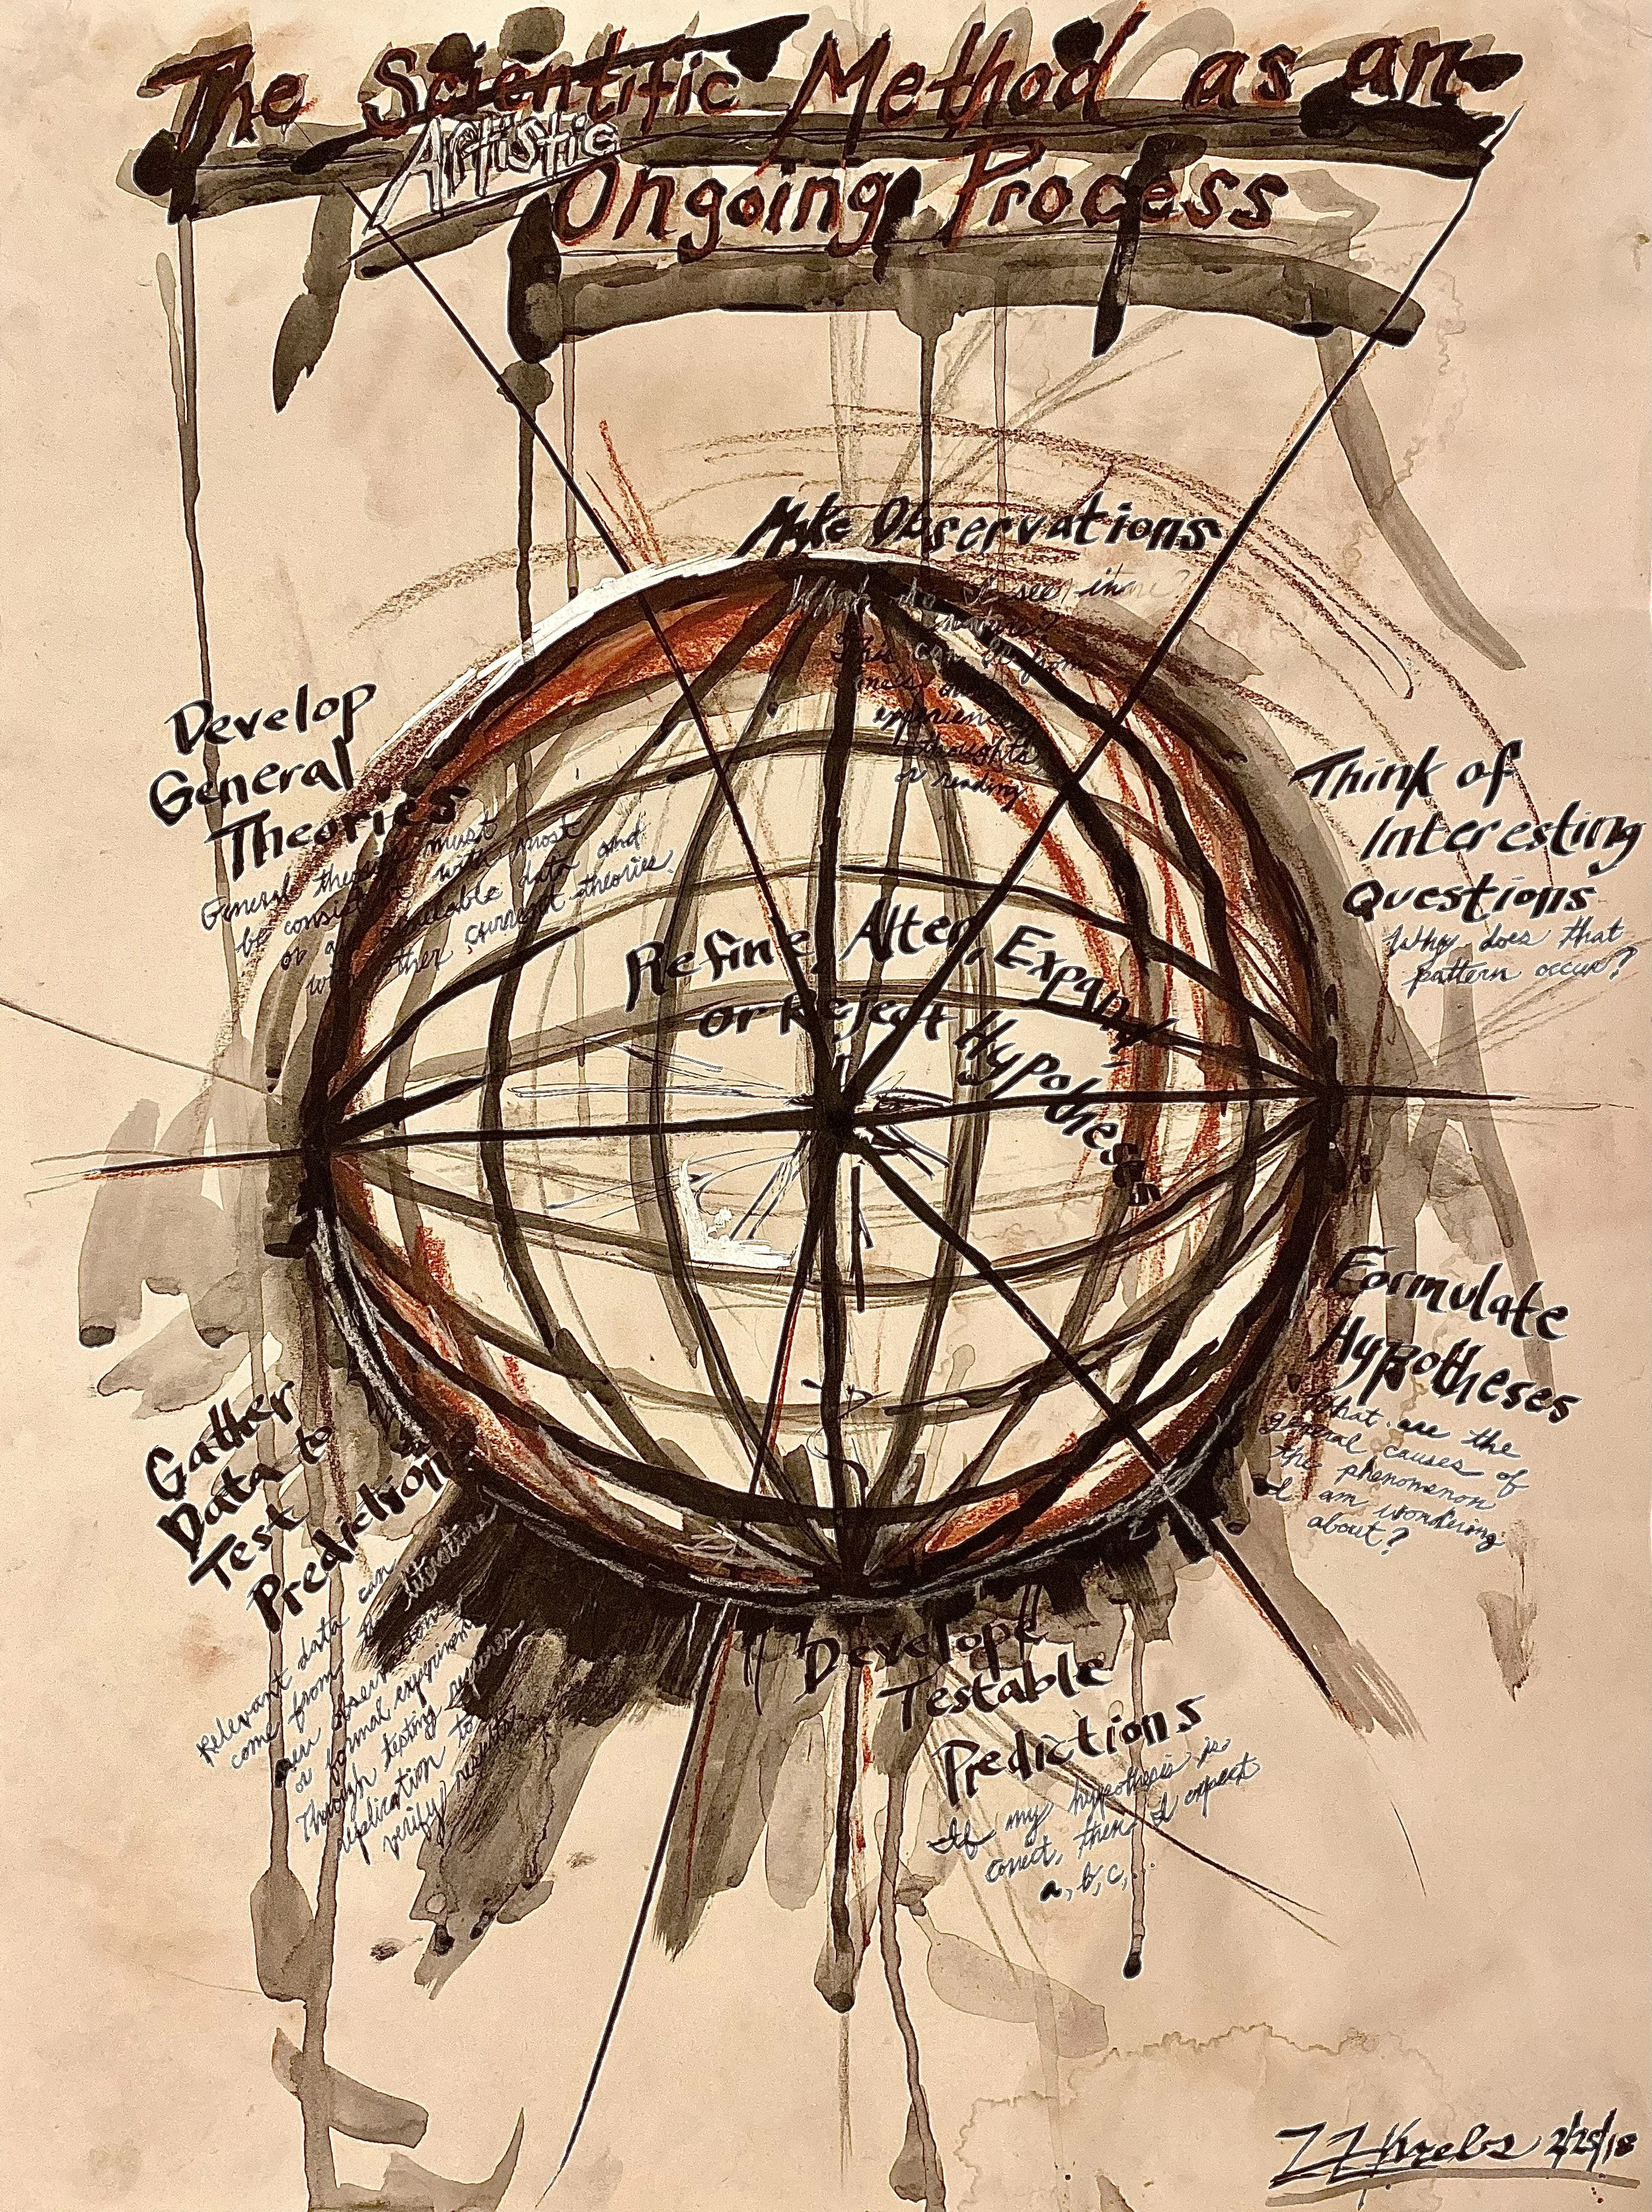 The Scientific Method as an
Artistic
Ongoing Process
Make Observations
What do I see in
nature?
This can be from
one's own
experiences,
thoughts
or reading
Think of
Interesting
Questions
Why does that
pattern occur?
Formulate
Hypotheses
What are the
general causes of
the phenomenon
I am wondering
about?
Develope
Testable
Predictions
If my hypothesis is
correct, then I expect
a, b, c, ...
Gather
Data to
Test
Predictions
Relevant data can
come from the literature
new observations
or formal experiments
Through testing requires
replication to
verify results
Refine, Alter, Expand,
or Reject Hypotheses
Develop
General
Theories
General theories must
be consistent with most
or all available data and
with other current theories.
ZZ Krebs 2/25/18